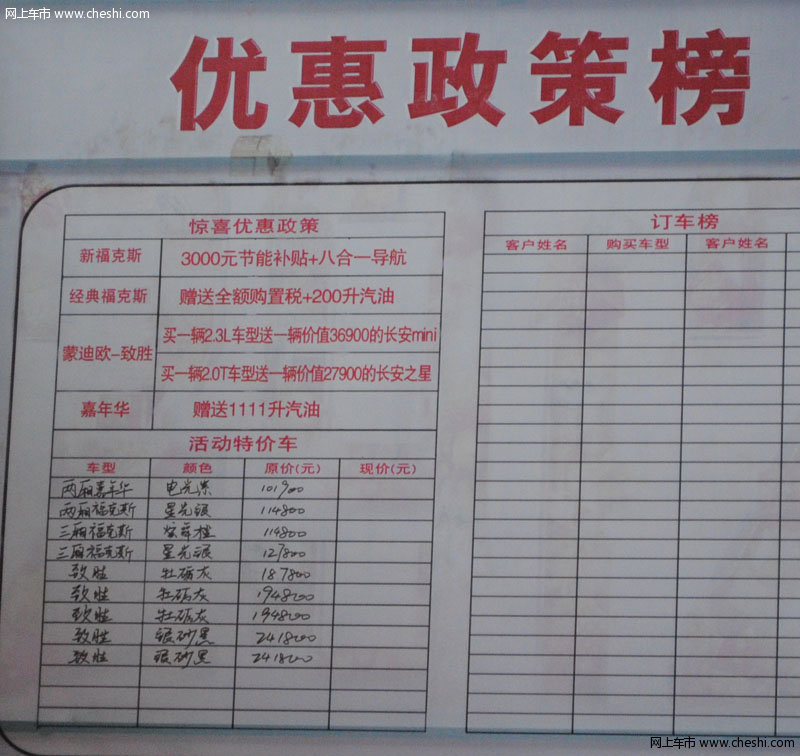 网上车市 www.cheshi.com
网上车市 www.cheshi.com
优惠政策榜
惊喜优惠政策
新福克斯 3000元节能补贴+八合一导航
经典福克斯 赠送全额购置税+200升汽油
蒙迪欧-致胜 买一辆2.3L车型送一辆价值36900的长安mini
买一辆2.0T车型送一辆价值27900的长安之星
嘉年华 赠送1111升汽油
活动特价车
车型 颜色 原价(元) 现价(元)
两厢嘉年华 电光 101900
两厢福克斯 星光银 114800
三厢福克斯 114800
三厢福克斯 星光银 127800
致胜 牡砺灰 187800
致胜 牡砺灰 194800
致胜 牡砺灰 194800
致胜 银砂黑 241800
致胜 银砂黑 241800
订车榜
客户姓名 购买车型 客户姓名
网上车市 www.cheshi.com